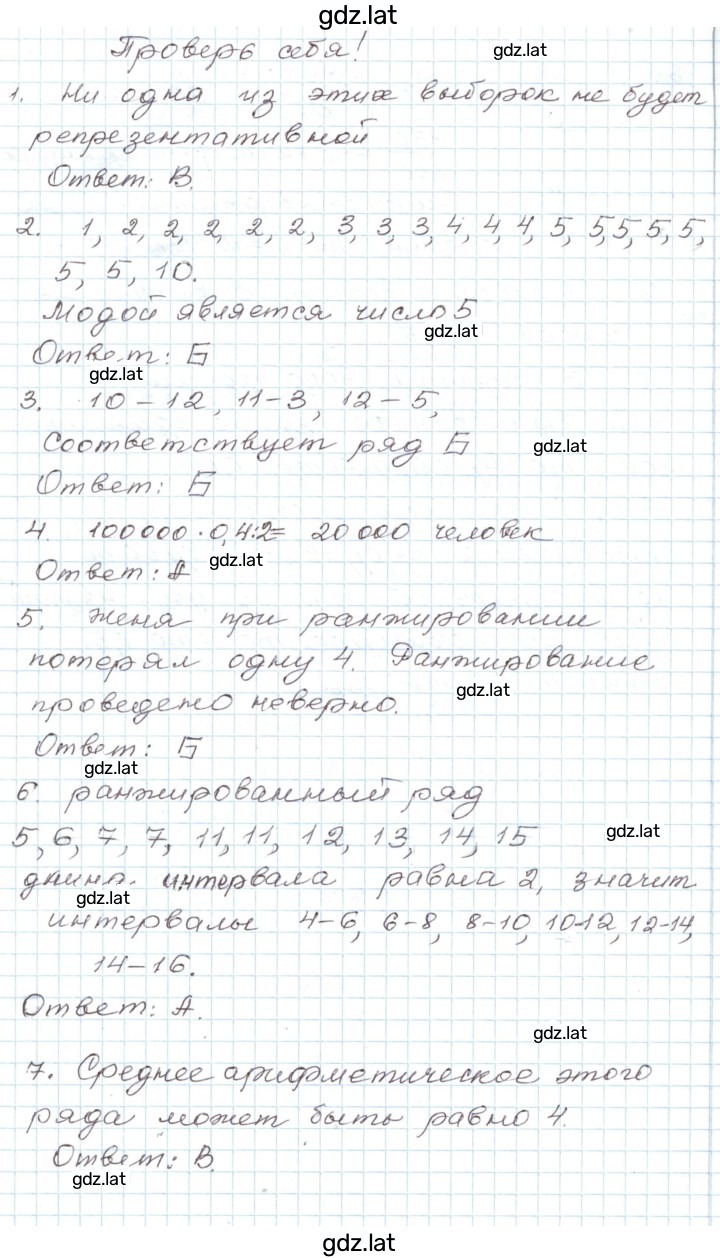 gdz.lat
Проверь себя!
gdz.lat
1. Ни одна из этих выборок не будет
репрезентативной
Ответ: В.
2. 1, 2, 2, 2, 2, 2, 3, 3, 3, 4, 4, 4, 5, 5, 5, 5, 5,
5, 5, 10.
Модой является число 5
gdz.lat
Ответ: Б
gdz.lat
3. 10 – 12, 11 – 3, 12 – 5,
Соответствует ряд Б
gdz.lat
Ответ: Б
4. 100000 · 0,4:2= 20 000 человек
gdz.lat
Ответ: А
5. Женя при ранжировании
потерял одну 4. Ранжирование
gdz.lat
проведено неверно.
Ответ: Б
gdz.lat
6. ранжированный ряд
5, 6, 7, 7, 11, 11, 12, 13, 14, 15
gdz.lat
длина интервала равна 2, значит
gdz.lat
интервалы 4–6, 6–8, 8–10, 10–12, 12–14,
14–16.
Ответ: А.
gdz.lat
7. Среднее арифметическое этого
ряда может быть равно 4.
Ответ: В.
gdz.lat
gdz.lat